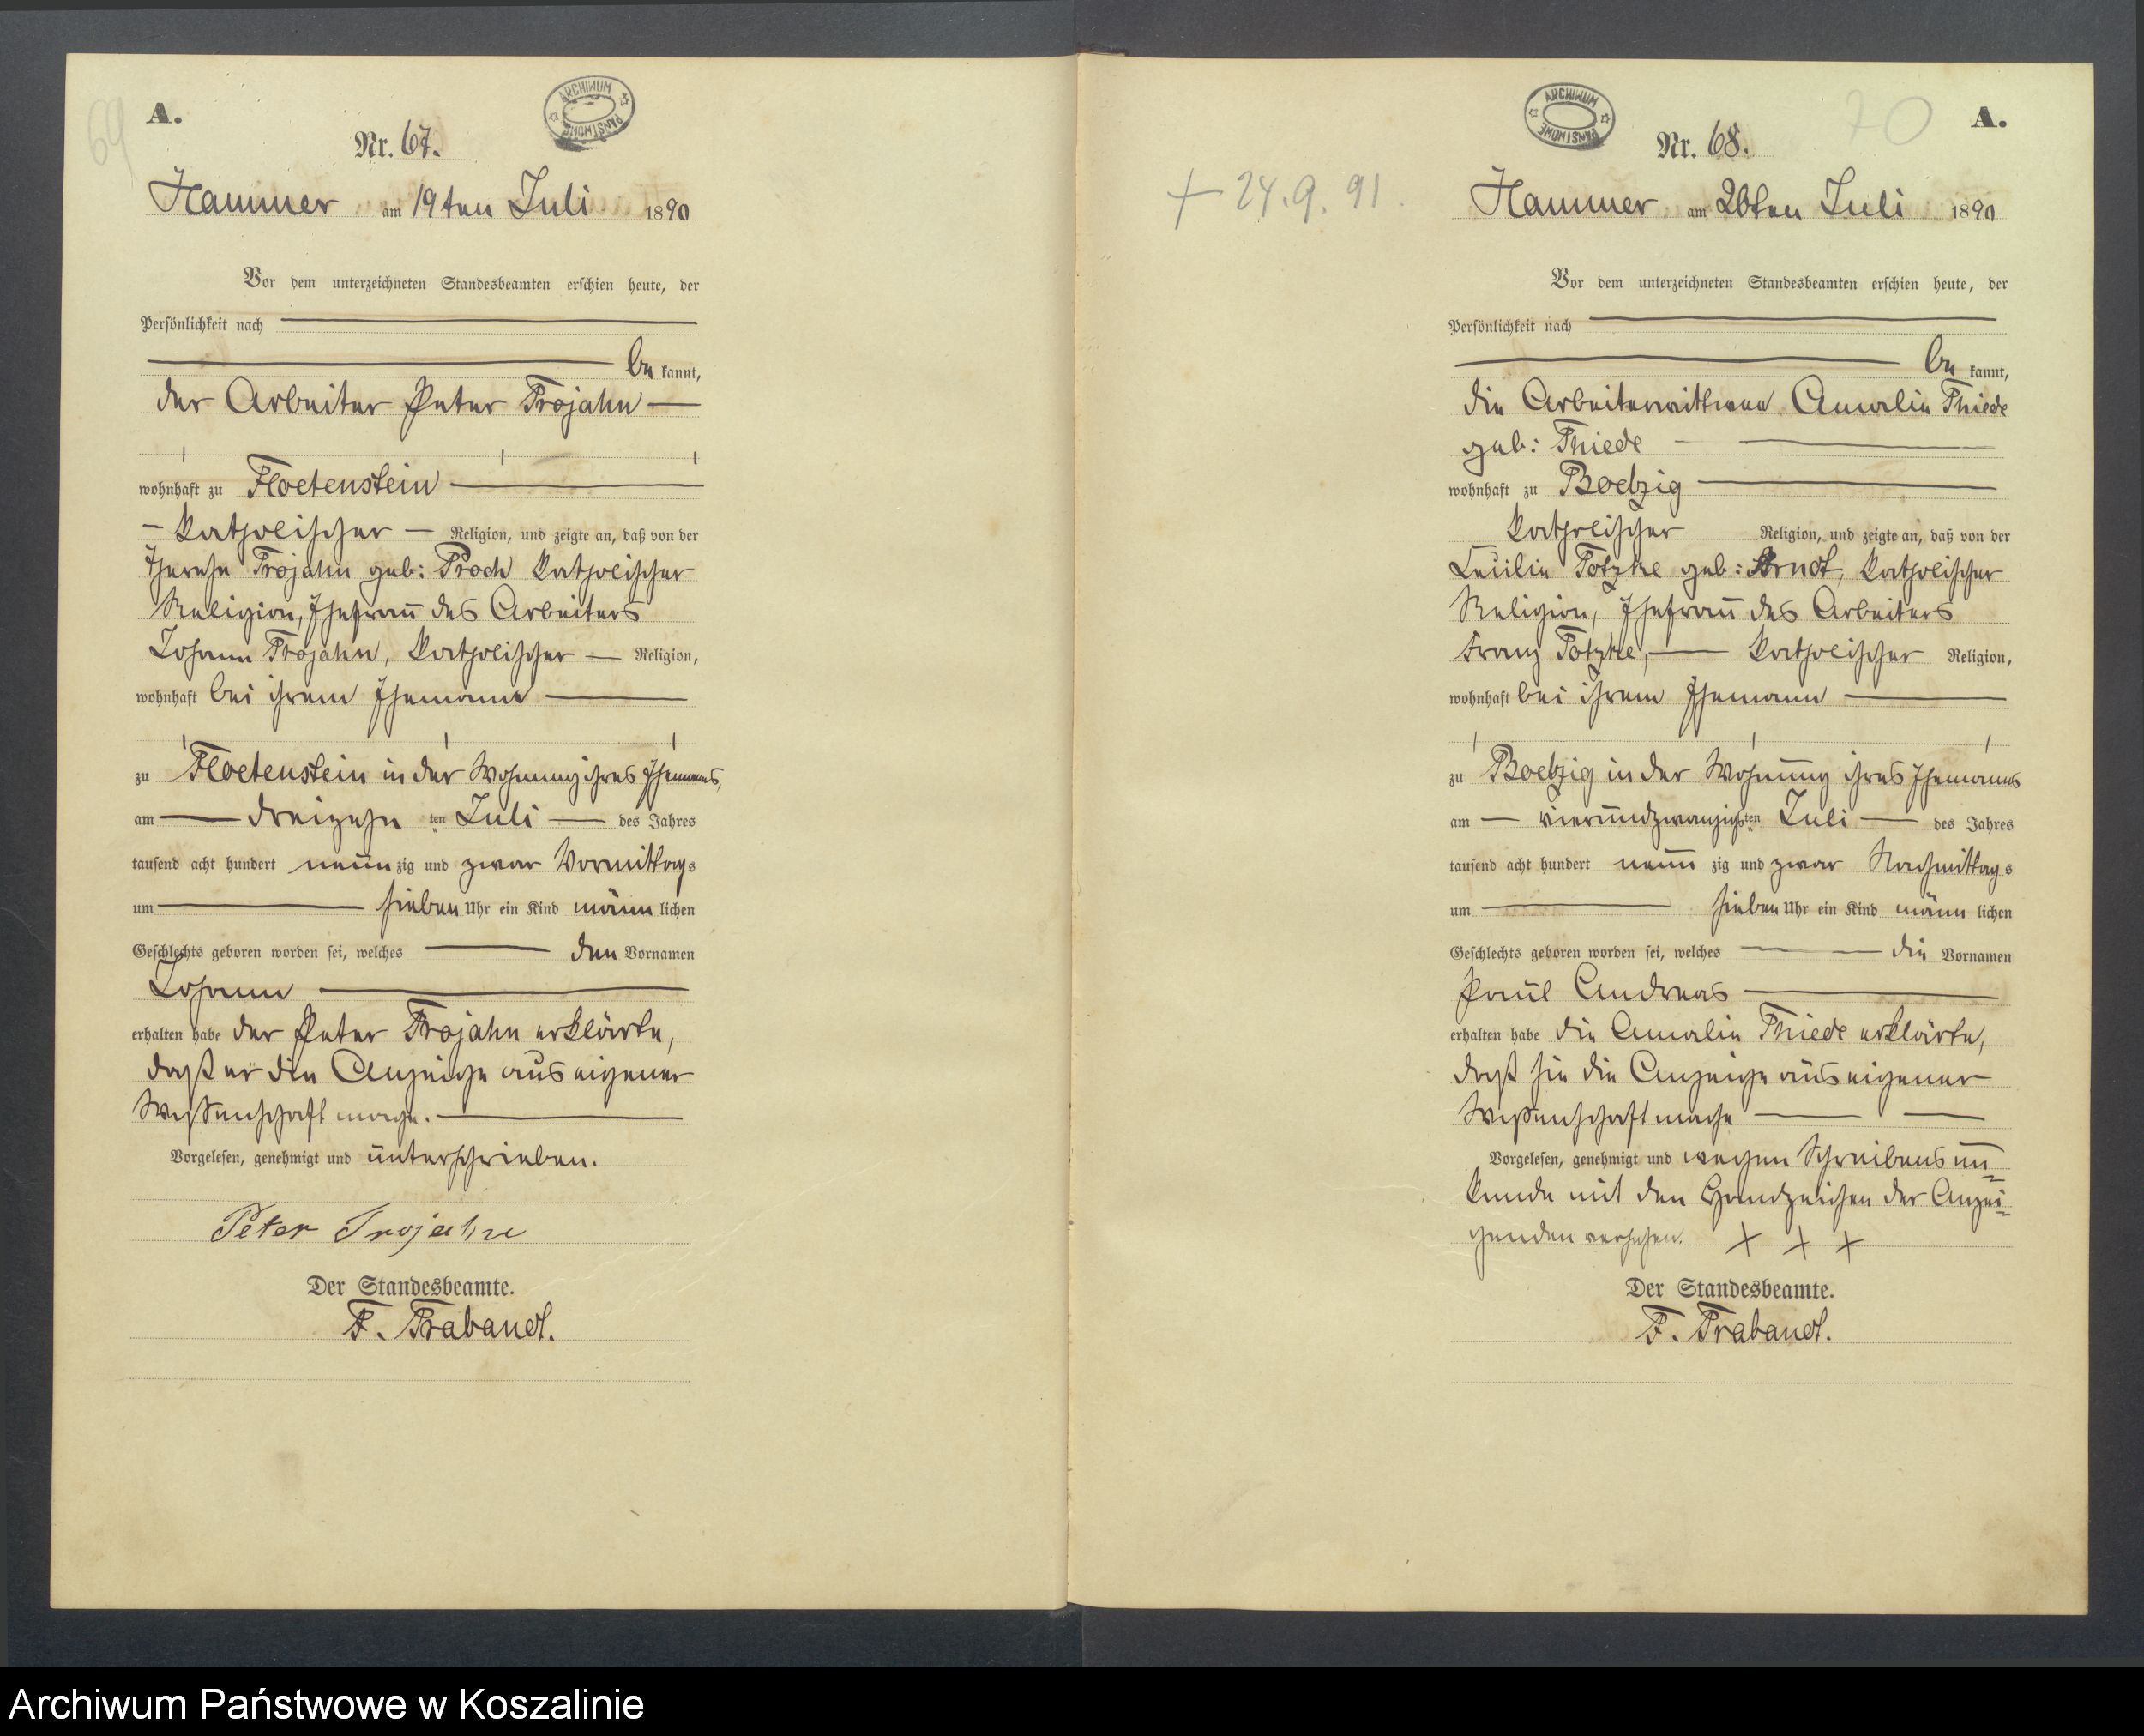 69
A.
ARCHIWUM PAŃSTWOWE
Nr. 67.
Hammer am 19ten Juli 1890
Vor dem unterzeichneten Standesbeamten erschien heute, der
Persönlichkeit nach
be kannt,
der Arbeiter Peter Trojahn
wohnhaft zu Floetenstein
katholischer Religion, und zeigte an, daß von der
Therese Trojahn geb: Proch katholischer
Religion, Ehefrau des Arbeiters
Johann Trojahn, katholischer Religion,
wohnhaft bei ihrem Ehemanne
zu Floetenstein in der Wohnung ihres Ehemannes,
am dreizehn ten Juli des Jahres
tausend acht hundert neun zig und zwar Vormittags
um sieben Uhr ein Kind männ lichen
Geschlechts geboren worden sei, welches den Vornamen
Johann
erhalten habe der Peter Trojahn erklärte,
daß er die Anzeige aus eigener
Wissenschaft mache.
Vorgelesen, genehmigt und unterschrieben.
Peter Trojahn
Der Standesbeamte.
F. Trabandt.
70
A.
ARCHIWUM PAŃSTWOWE
Nr. 68.
+ 24.9.91.
Hammer am 26ten Juli 1890
Vor dem unterzeichneten Standesbeamten erschien heute, der
Persönlichkeit nach
be kannt,
die Arbeiterwittwe Amalie Thiede
geb: Thiede
wohnhaft zu Boelzig
katholischer Religion, und zeigte an, daß von der
Cecilie Totzke geb: Arndt, katholischer
Religion, Ehefrau des Arbeiters
Franz Totzke, katholischer Religion,
wohnhaft bei ihrem Ehemann
zu Boelzig in der Wohnung ihres Ehemanns
am vierundzwanzigsten Juli des Jahres
tausend acht hundert neun zig und zwar Nachmittags
um sieben Uhr ein Kind männ lichen
Geschlechts geboren worden sei, welches die Vornamen
Paul Andreas
erhalten habe die Amalie Thiede erklärte,
daß sie die Anzeige aus eigener
Wißenschaft mache
Vorgelesen, genehmigt und wegen Schreibens un=
kunde mit den Handzeichen der Anzei=
genden versehen. + + +
Der Standesbeamte.
F. Trabandt.
Archiwum Państwowe w Koszalinie